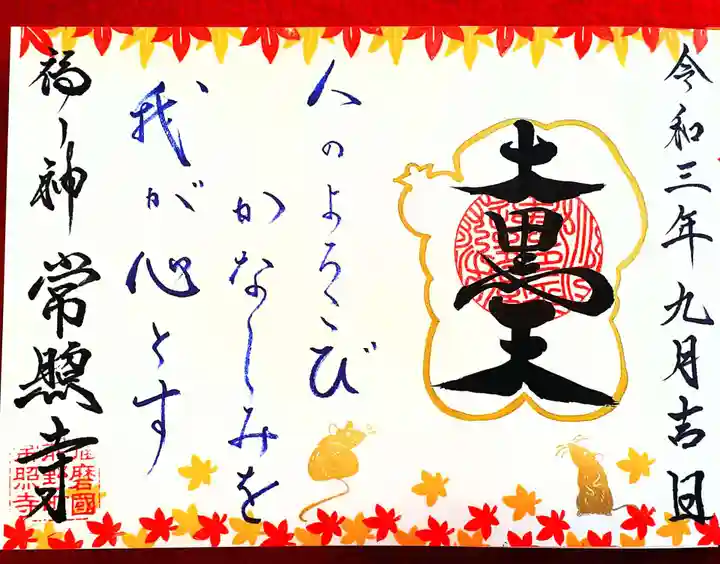 令和三年九月吉日
大黒天
人のよろこび
かなしみを
我が心とす
福ノ神 常照寺
播磨國
常照寺